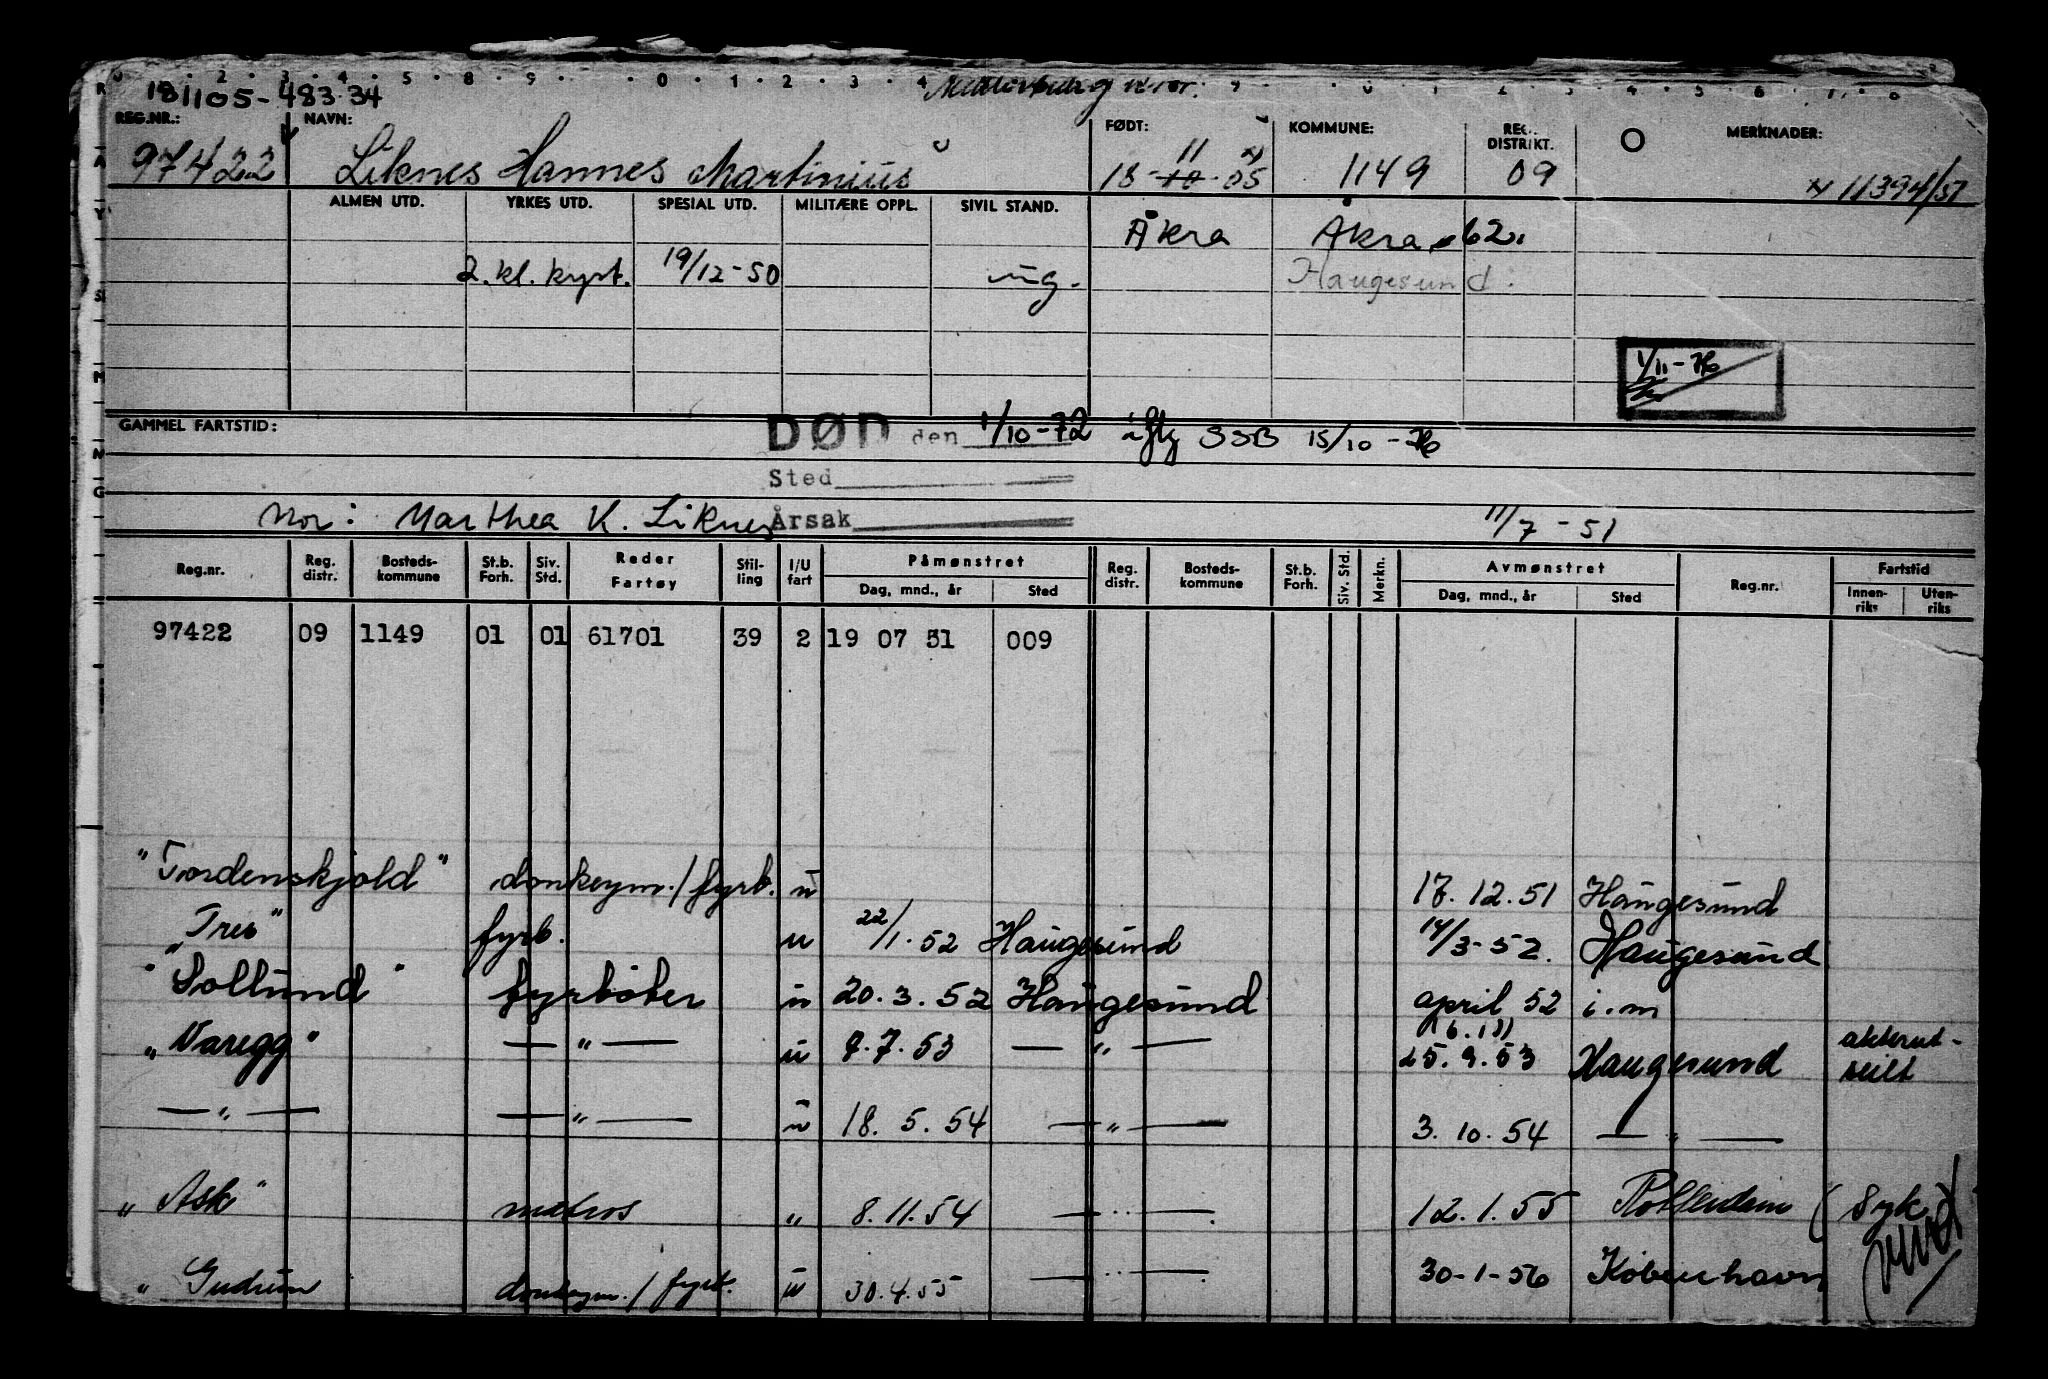 181105-483 34
REG.NR.: NAVN: FØDT: KOMMUNE: REG. DISTRIKT. MERKNADER:
97422 Liknes Hannes Martinius 18-10-05 11 x) 1149 09 x) 11394/51
ALMEN UTD. YRKES UTD. SPESIAL UTD. MILITÆRE OPPL. SIVIL STAND.
Åkra Åkra 62
2. kl. kyst. 19/12-50 ug. Haugesund
1/11-76
GAMMEL FARTSTID:
DØD den 1/10-72 iflg SSB 15/10-76
Sted
Mor: Marthea K. Liknes Årsak 11/7-51
Reg.nr. Reg. distr. Bosteds-kommune St.b. Forh. Siv. Std. Reder Fartøy Stil-ling I/U fart Påmønstret Reg. distr. Bosteds-kommune St.b. Forh. Siv. Std. Merkn. Avmønstret Reg.nr. Fartstid
Dag, mnd., år Sted Dag, mnd., år Sted Innen-riks Uten-riks
97422 09 1149 01 01 61701 39 2 19 07 51 009
"Tordenskjold" donkeym./fyrb. u 17.12.51 Haugesund
"Tres" fyrb. u 22/1.52 Haugesund 14/3-52. Haugesund
"Sollund" fyrbøter u 20.3.52 Haugesund april 52 i.m
"Varegg" — " — u 9.7.53 — " — 25.9.53 Haugesund akterut-seilt
— " — — " — u 18.5.54 — " — 3.10.54 — " —
"Ask" matros " 8.11.54 — " — 12.1.55 Rotterdam (syk
"Gudrun donkeym./fyrb. u 30.4.55 — " — 30-1-56 København